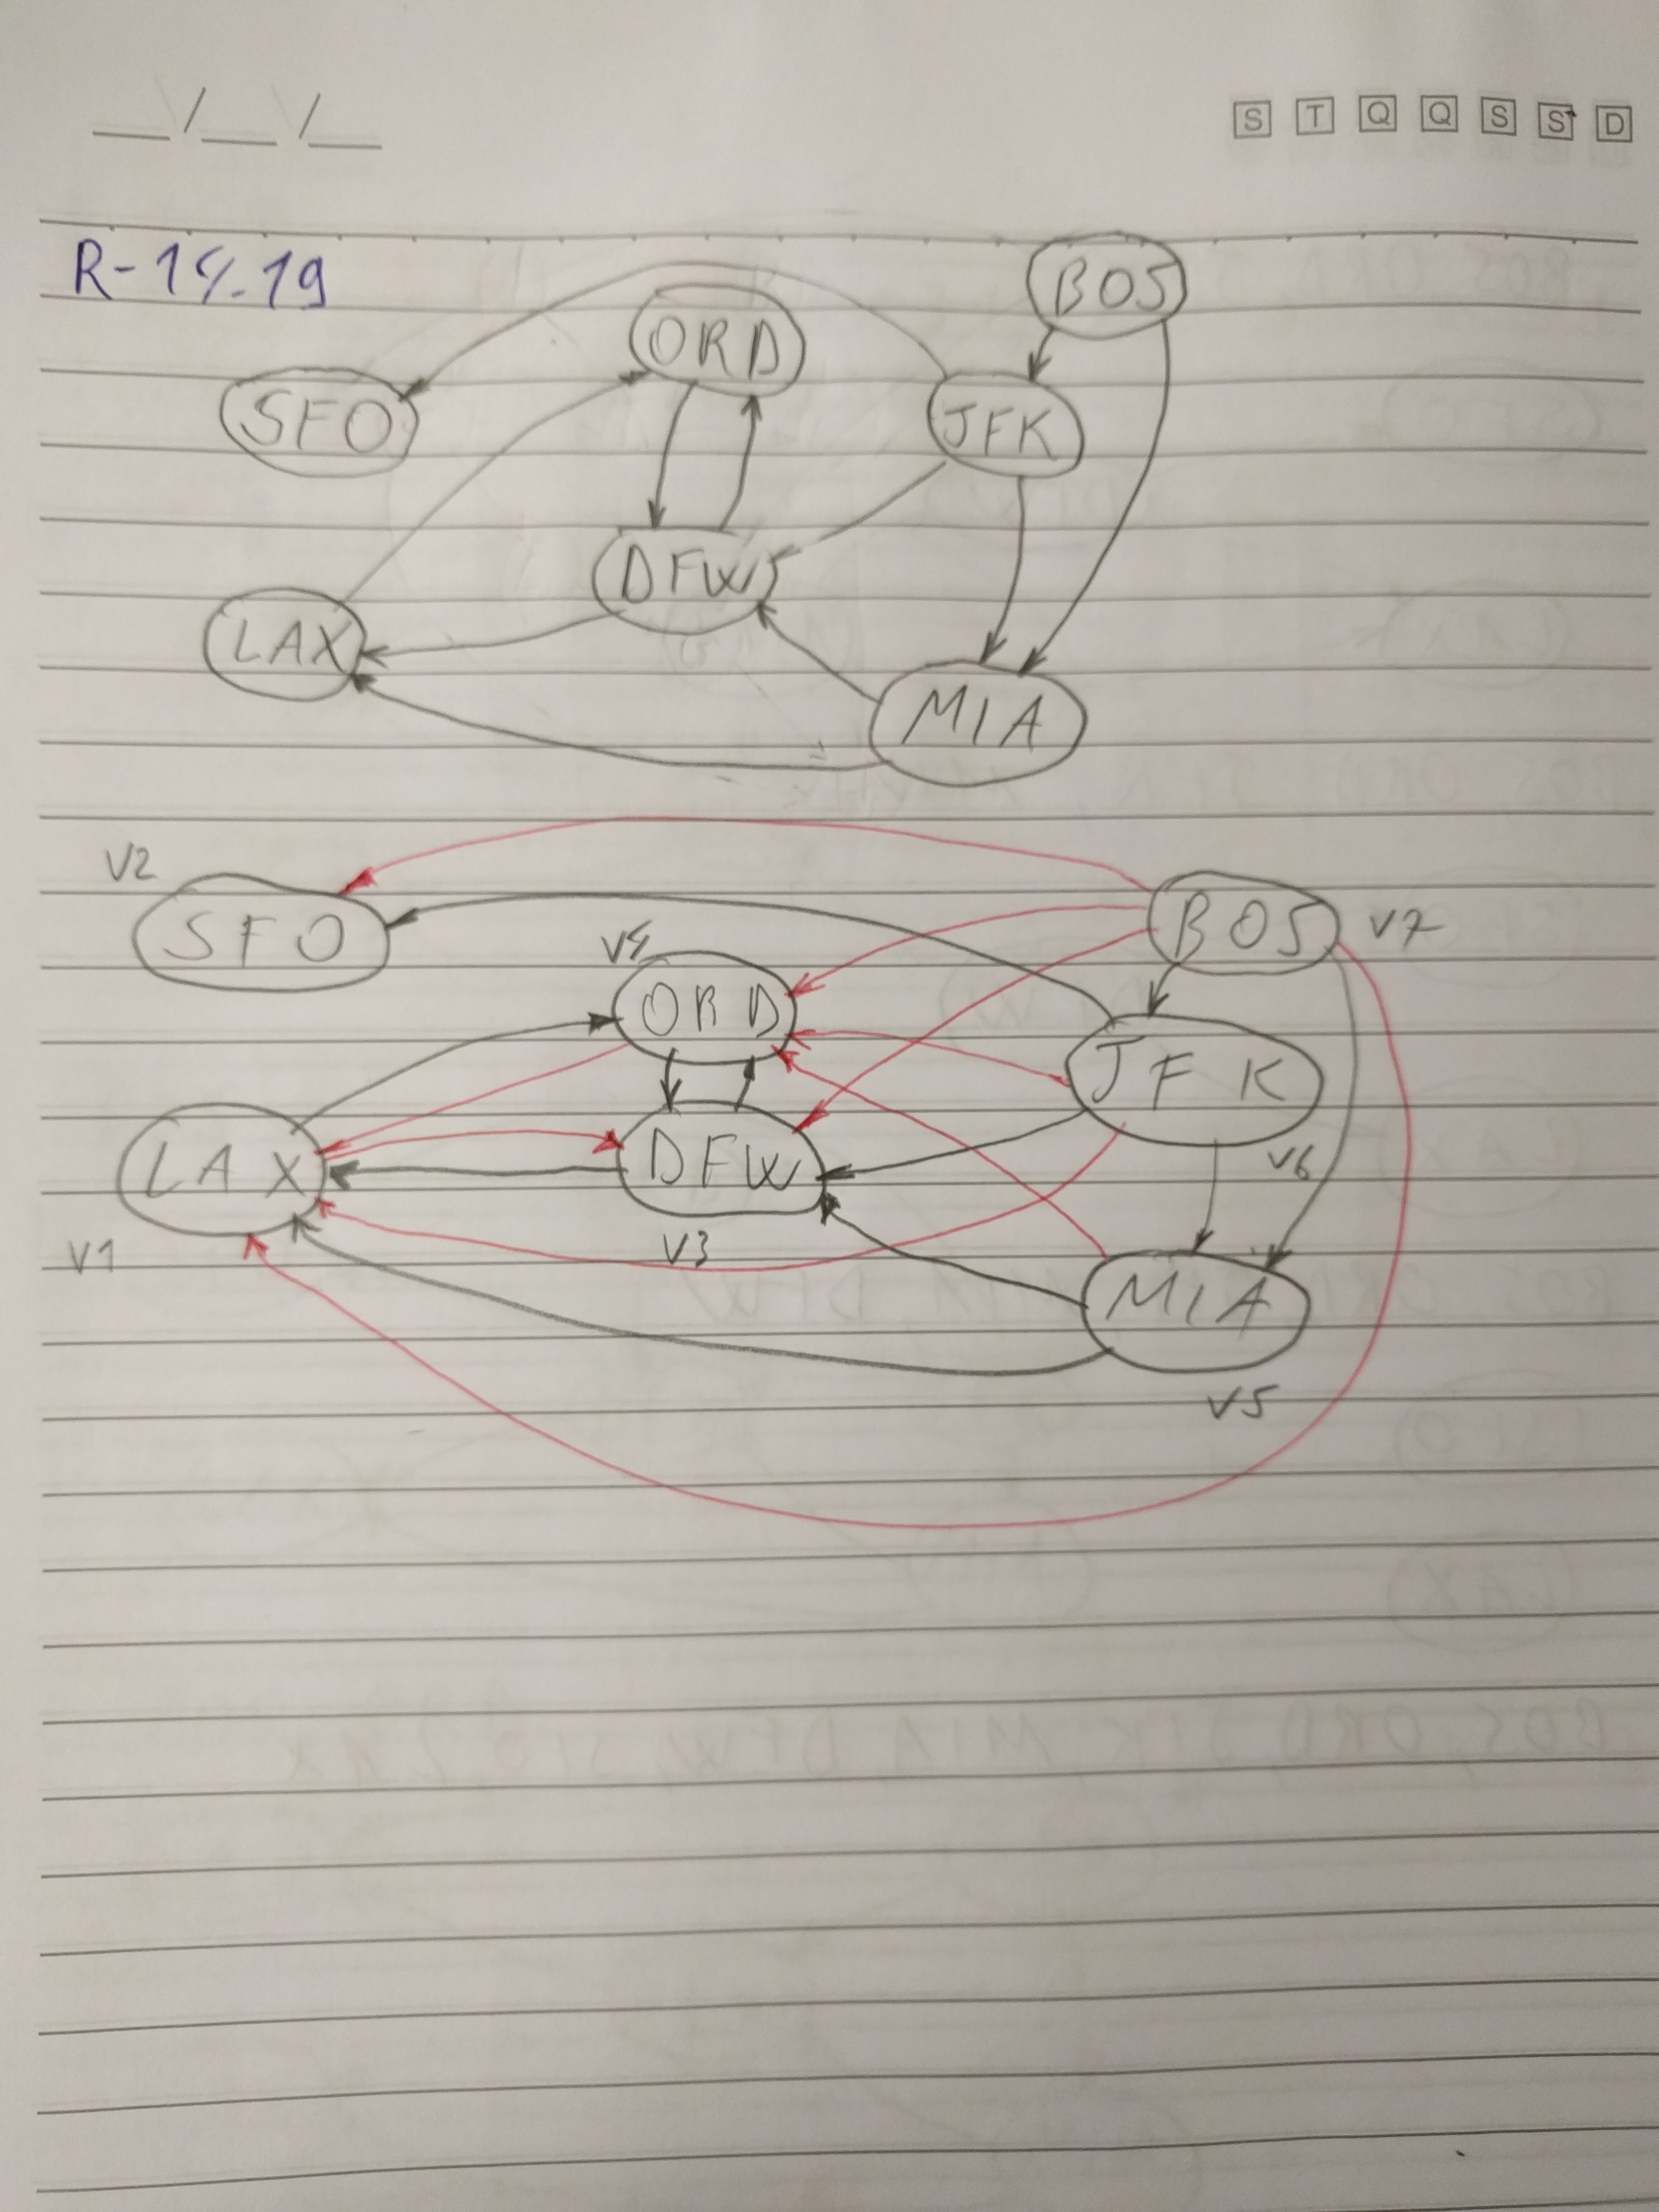 __/__/__ S T Q Q S S D
R-14.19
BOS
ORD
SFO
JFK
DFW
LAX
MIA
V2
SFO
BOS V7
V4
ORD
JFK
V6
LAX
DFW
V1
V3
MIA
V5